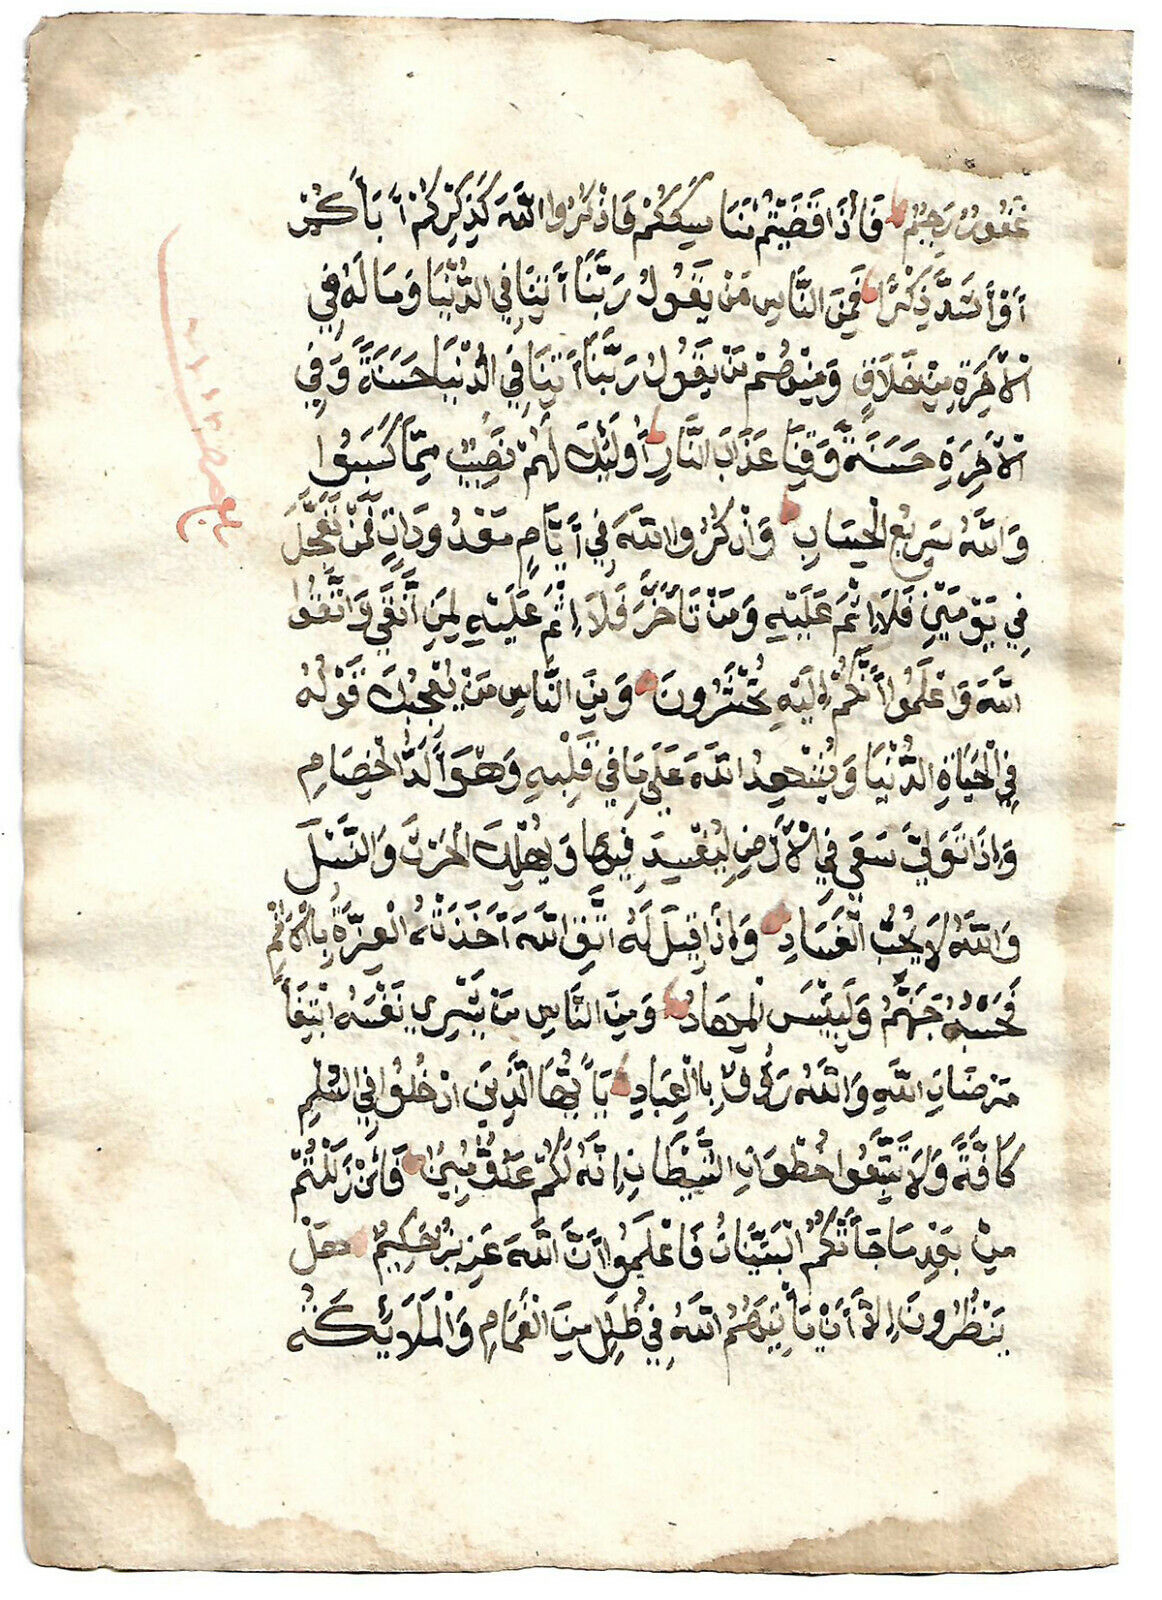 غَفُورٌ رَحِيمٌ فَأِذَا قَضَيْتُمْ مَنَاسِكَكُمْ فَاذْكُرُوا اللَّهَ كَذِكْرِكُمْ أَبَأَكُمْ
أَوْ أَشَدَّ ذِكْرًا فَمِنَ النَّاسِ مَنْ يَقُولُ رَبَّنَا أَتِنَا فِي الدُّنْيَا وَمَا لَهُ فِي
الْأَخِرَةِ مِنْ خَلَاقٍ وَمِنْهُمْ مَنْ يَقُولُ رَبَّنَا أَتِنَا فِي الدُّنْيَا حَسَنَةً وَفِي
الْأَخِرَةِ حَسَنَةً وَقِنَا عَذَابَ النَّارِ أُولَئِكَ لَهُمْ نَصِيبٌ مِمَّا كَسَبُوا
وَاللَّهُ سَرِيعُ الْحِسَابِ وَاذْكُرُوا اللَّهَ فِي أَيَّامٍ مَعْدُودَاتٍ فَمَنْ تَعَجَّلَ
فِي يَوْمَيْنِ فَلَا اِثْمَ عَلَيْهِ وَمَنْ تَأَخَّرَ فَلَا اِثْمَ عَلَيْهِ لِمَنِ اتَّقَى وَاتَّقُوا
اللَّهَ وَاعْلَمُوا أَنَّكُمْ اِلَيْهِ تُحْشَرُونَ وَمِنَ النَّاسِ مَنْ يُعْجِبُكَ قَوْلُهُ
فِي الْحَيَاةِ الدُّنْيَا وَيُشْهِدُ اللَّهَ عَلَى مَا فِي قَلْبِهِ وَهُوَ أَلَدُّ الْخِصَامِ
وَاِذَا تَوَلَّى سَعَى فِي الْأَرْضِ لِيُفْسِدَ فِيهَا وَيُهْلِكَ الْحَرْثَ وَالنَّسْلَ
وَاللَّهُ لَا يُحِبُّ الْفَسَادَ وَاِذَا قِيلَ لَهُ اتَّقِ اللَّهَ أَخَذَتْهُ الْعِزَّةُ بِالْأِثْمِ
فَحَسْبُهُ جَهَنَّمُ وَلَبِئْسَ الْمِهَادُ وَمِنَ النَّاسِ مَنْ يَشْرِي نَفْسَهُ ابْتِغَأَ
مَرْضَاتِ اللَّهِ وَاللَّهُ رَؤُوفٌ بِاالْعِبَادِ يَا أَيُّهَا الَّذِينَ ادْخُلُوا فِي السِّلْمِ
كَافَّةً وَلَا تَتَّبِعُوا خُطُوَاتِ الشَّيْطَانِ اِنَّهُ لَكُمْ عَدُوٌّ مُبِينٌ فَأِنْ زَلَلْتُمْ
مِنْ بَعْدِ مَا جَأَتْكُمُ الْبَيِّنَاتُ فَاعْلَمُوا أَنَّ اللَّهَ عَزِيزٌ حَكِيمٌ هَلْ
يَنْظُرُونَ اِلَّا أَنْ يَأْتِيَهُمُ اللَّهُ فِي ظُلَلٍ مِنَ الْغَمَامِ وَالْمَلَائِكَةُ